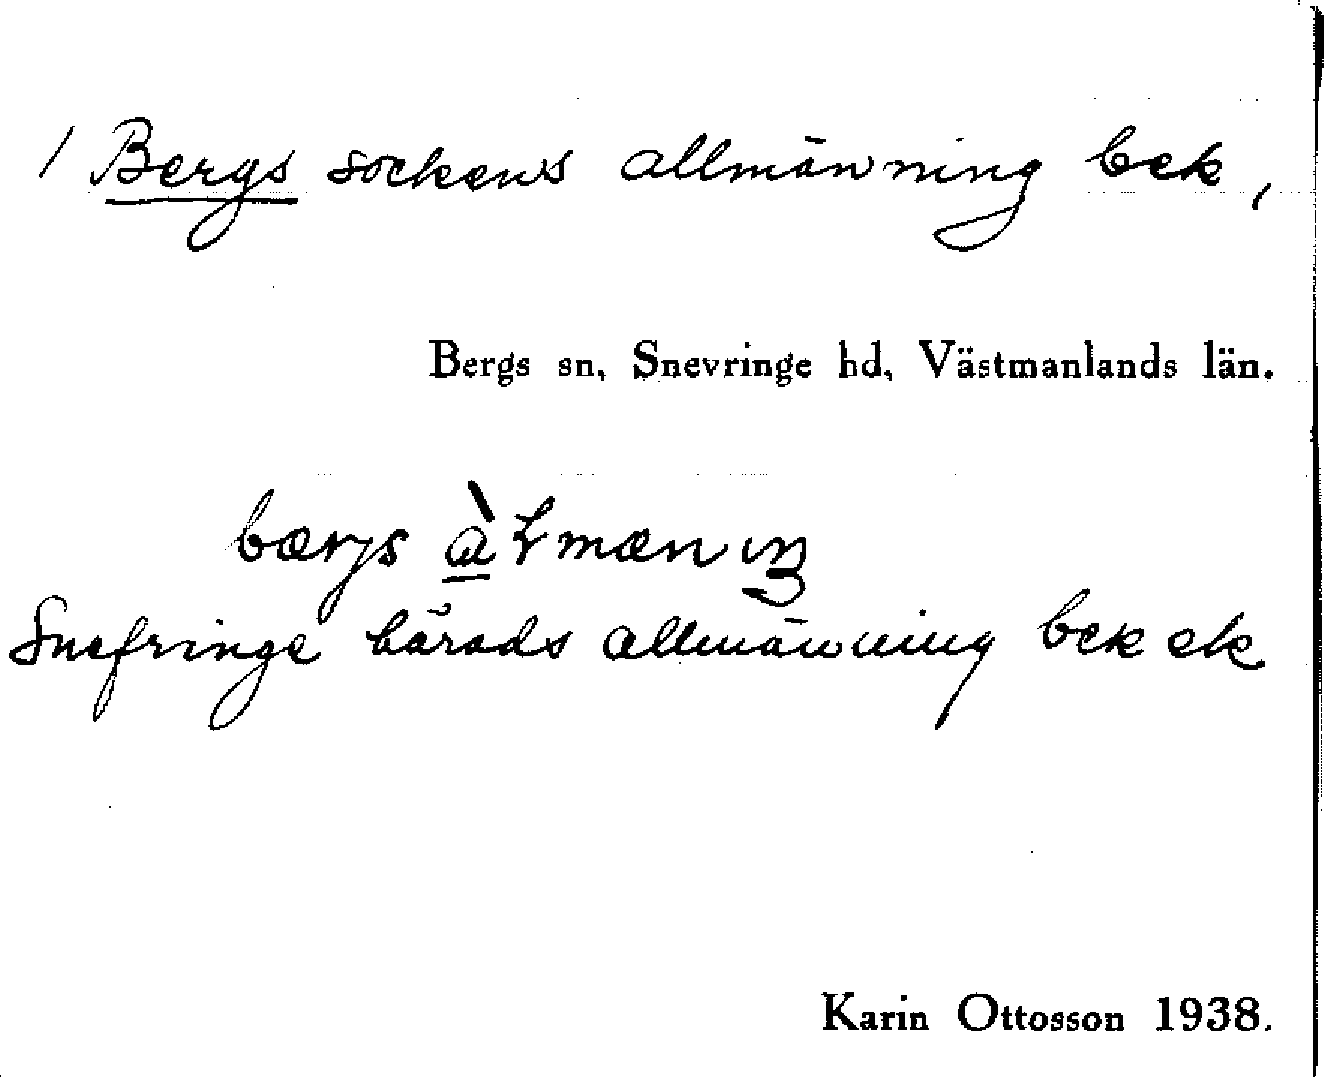 / Bergs sockens allmänning bek,
Bergs sn, Snevringe hd, Västmanlands län.
bærjs àłmænıŋ
Snefringe härads allmänning bek ek
Karin Ottosson 1938.